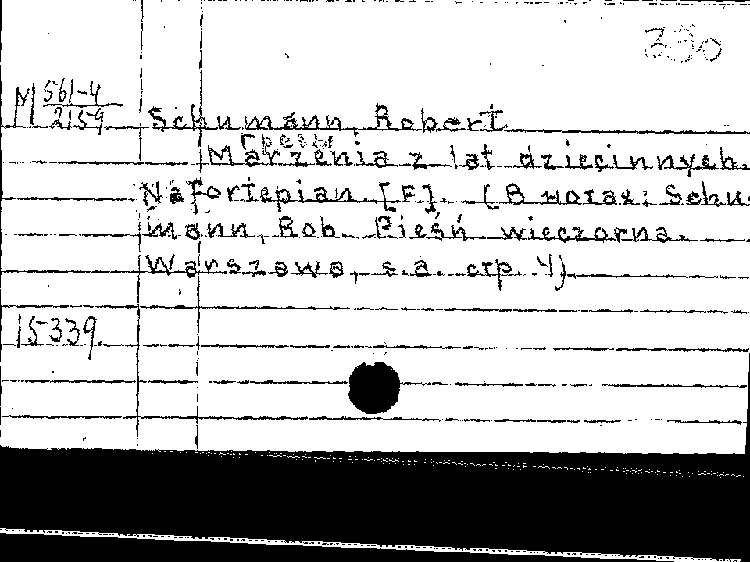 330
М 561-4
2159
Schumann, Robert
Грезы
Marzenia z lat dziecinnych.
Na fortepian [F]. (В нотах: Schu-
mann, Rob. Pieśń wieczorna.
Warszawa, s.a. стр. 4)
15339.